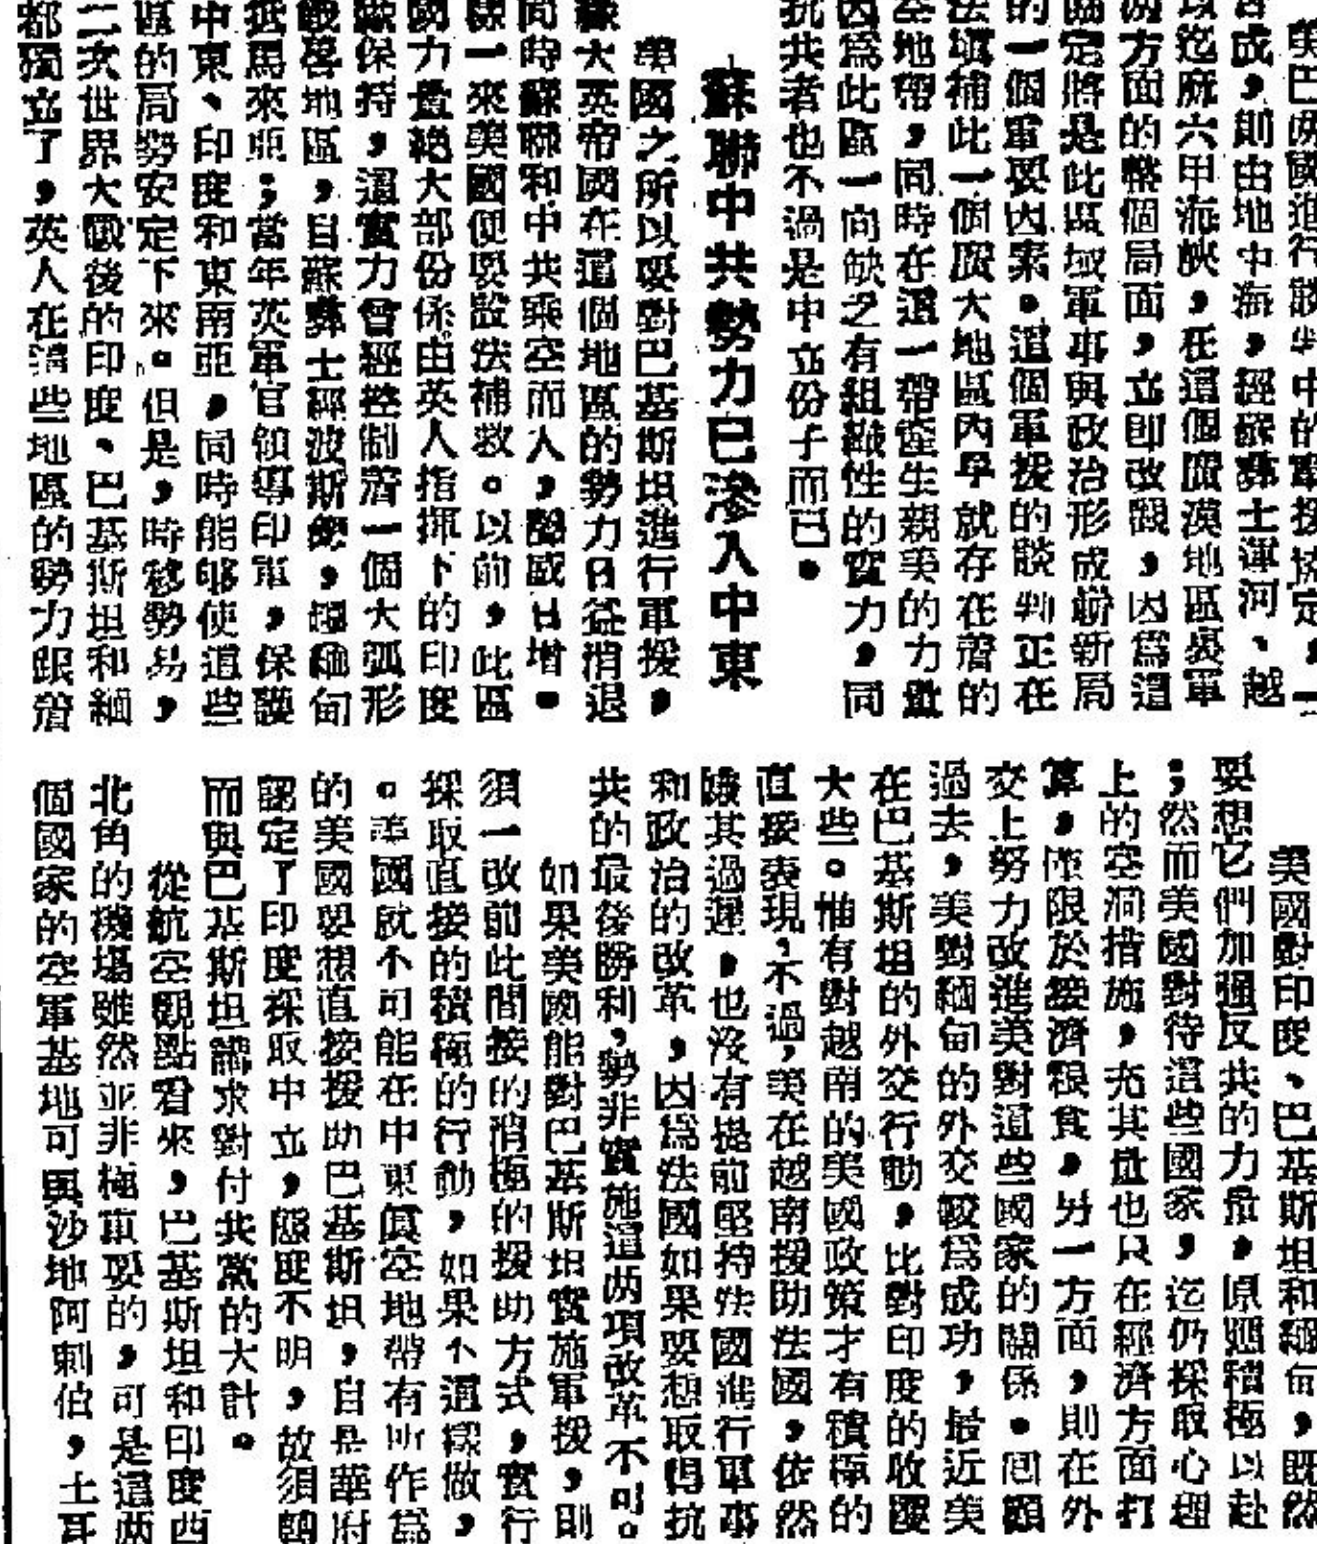 美巴兩國進行談判中的軍援協定，一
告成，則由地中海，經蘇彝士運河、越
以迄麻六甲海峽，在這個廣漠地區裏軍
兩方面的整個局面，立即改觀，因爲這
協定將是此區域軍事與政治形成嶄新局
的一個重要因素。這個軍援的談判正在
法塡補此一個廣大地區內早就存在着的
空地帶，同時在這一帶產生親美的力量
因爲此區一向缺乏有組織性的實力，同
抗共者也不過是中立份子而已。
蘇聯中共勢力已滲入中東
美國之所以要對巴基斯坦進行軍援，
緣大英帝國在這個地區的勢力日益消退
同時蘇聯和中共乘空而入，聲威日增。
樣一來美國便要設法補救。以前，此區
國力量絕大部份係由英人指揮下的印度
隊保持，這實力曾經控制着一個大弧形
戰略地區，自蘇彝士經波斯灣，緬甸
抵馬來亞；當年英軍官領導印軍，保護
中東、印度和東南亞，同時能够使這些
區的局勢安定下來。但是，時移勢易，
二次世界大戰後的印度、巴基斯坦和緬
都獨立了，英人在這些地區的勢力跟着
美國對印度、巴基斯坦和緬甸，既然
要想它們加强反共的力量，原應積極以赴
；然而美國對待這些國家，迄仍採取心理
上的空洞措施，充其量也只在經濟方面打
算，僅限於接濟糧食，另一方面，則在外
交上努力改進美對這些國家的關係。回顧
過去，美對緬甸的外交較爲成功，最近美
在巴基斯坦的外交行動，比對印度的收穫
大些。惟有對越南的美國政策才有積極的
直接表現，不過，美在越南援助法國，依然
嫌其過遲，也沒有提前堅持法國進行軍事
和政治的改革，因爲法國如果要想取得抗
共的最後勝利，勢非實施這兩項改革不可。
如果美國能對巴基斯坦實施軍援，則
須一改前此間接的消極的援助方式，實行
採取直接的積極的行動，如果不這樣做，
。美國就不可能在中東眞空地帶有所作爲
的美國要想直接援助巴基斯坦，自是華府
認定了印度採取中立，態度不明，故須轉
而與巴基斯坦謀求對付共黨的大計。
從航空觀點看來，巴基斯坦和印度西
北角的機塲雖然並非極重要的，可是這兩
個國家的空軍基地可與沙地阿剌伯，土耳